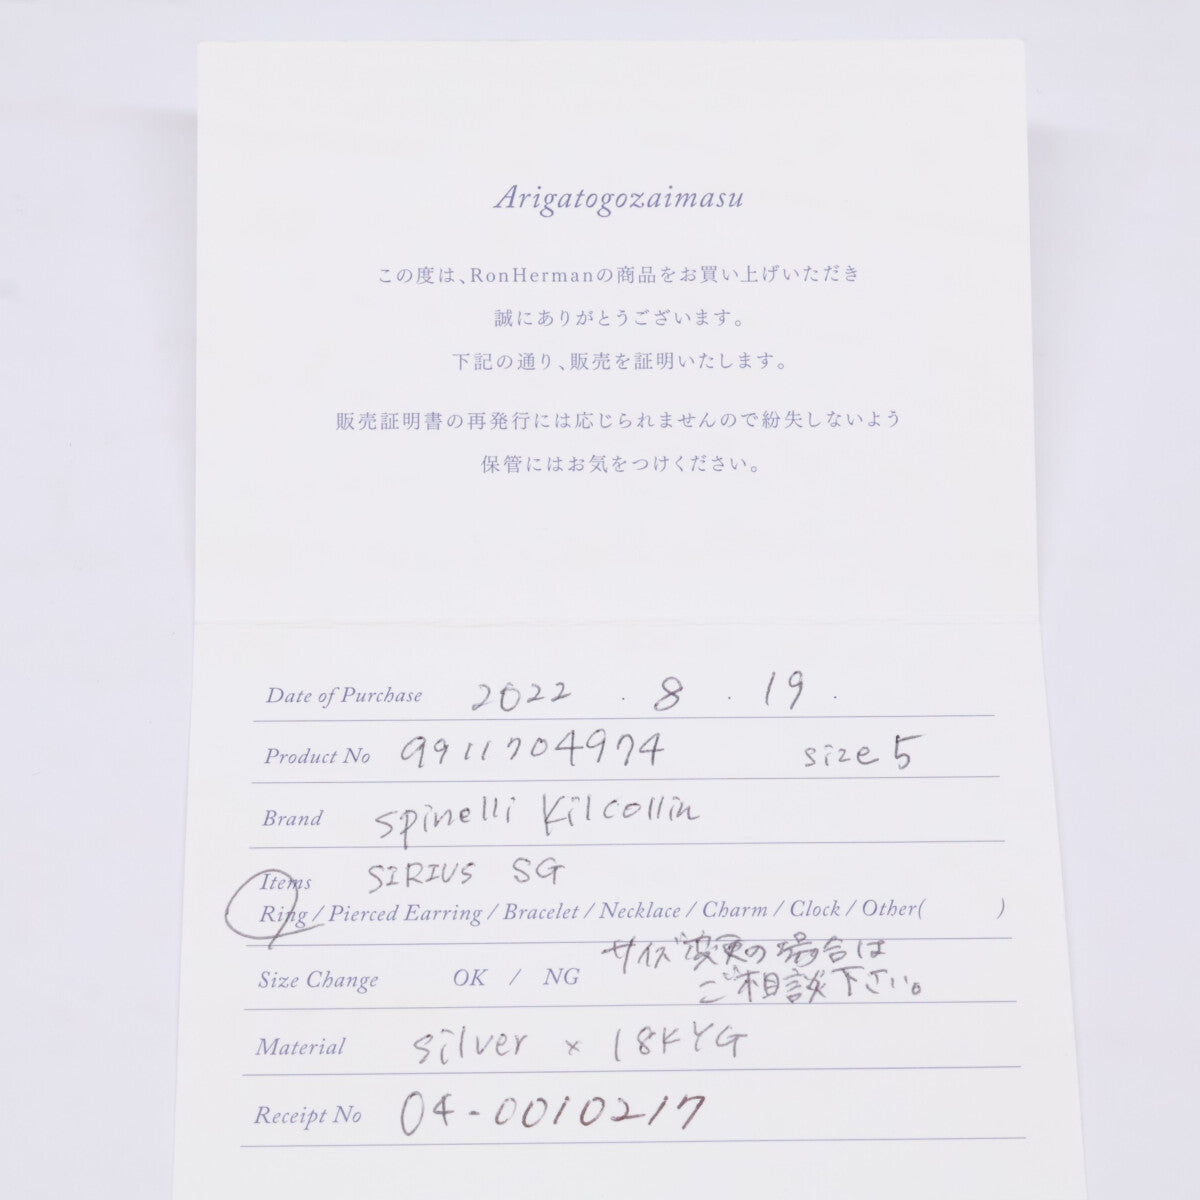 Arigatogozaimasu
この度は、RonHermanの商品をお買い上げいただき
誠にありがとうございます。
下記の通り、販売を証明いたします。
販売証明書の再発行には応じられませんので紛失しないよう
保管にはお気をつけください。
Date of Purchase 2022 . 8 . 19 .
Product No 9911704974 size 5
Brand Spinelli Kilcollin
Items SIRIUS SG
Ring / Pierced Earring / Bracelet / Necklace / Charm / Clock / Other( )
サイズ変更の場合は
Size Change OK / NG ご相談下さい。
Material silver × 18KYG
Receipt No 04-0010217